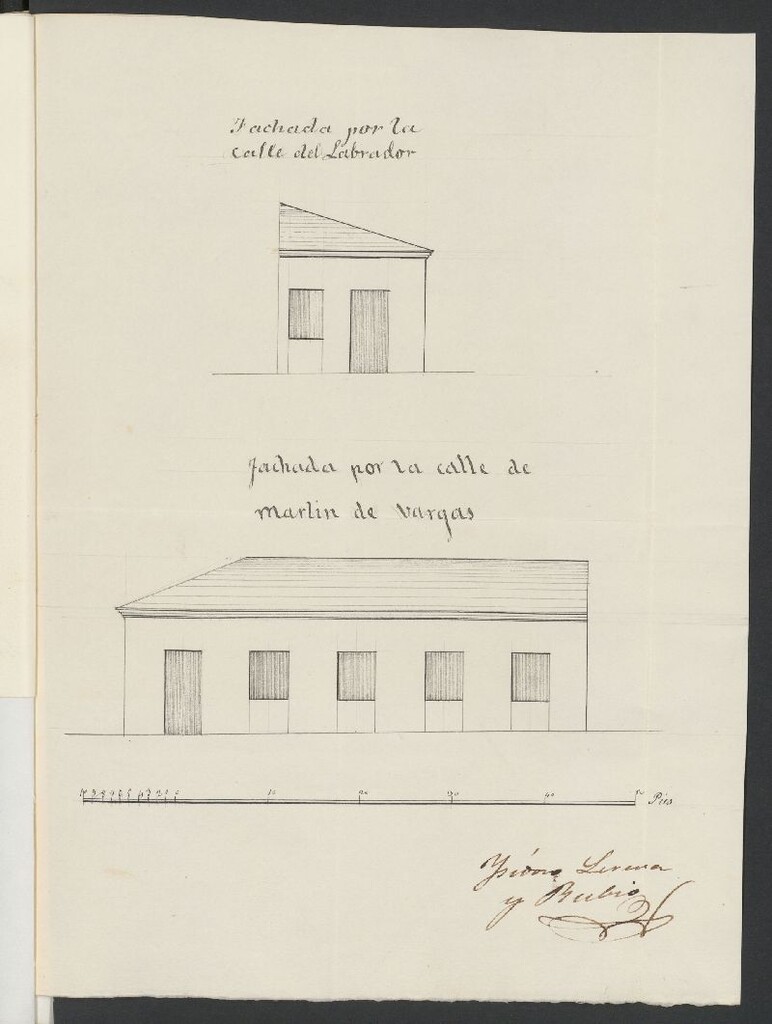 Fachada por la
calle del Labrador
fachada por la calle de
martin de vargas
10 9 8 7 6 5 4 3 2 1 0 10 20 30 40 50 Pies
Ysidro Lerena
y Rubio